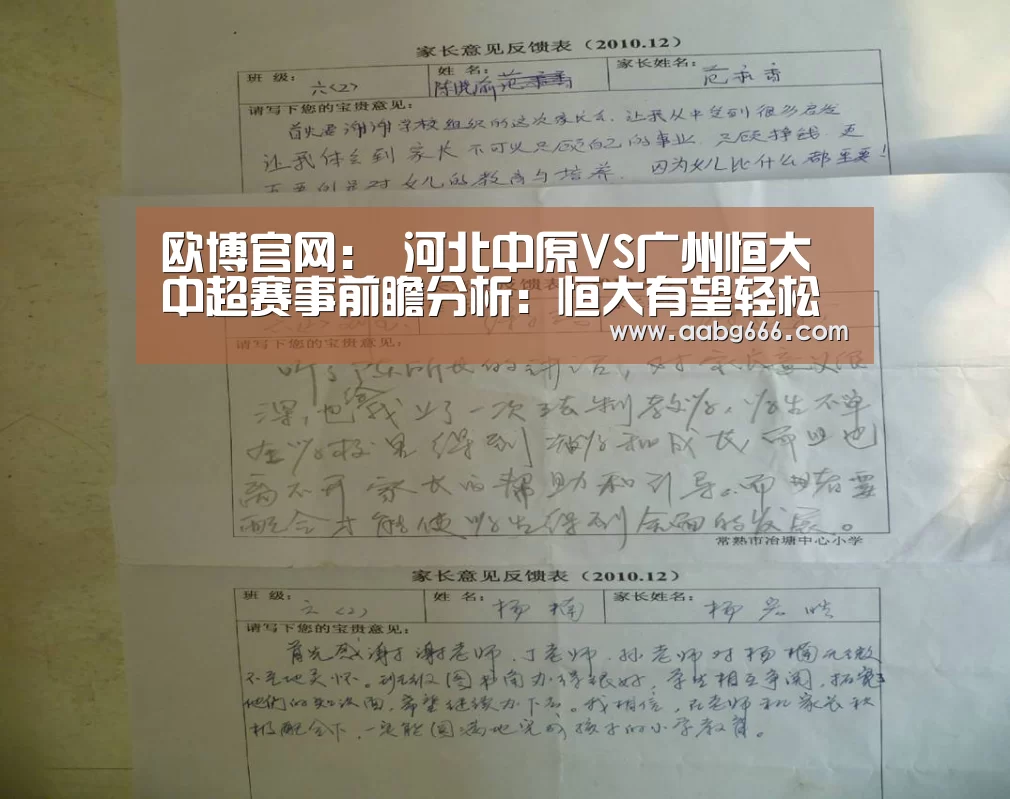 家长意见反馈表（2010.12）
班 级： 六(2) 姓 名： 家长姓名：
请写下您的宝贵意见：
首先是谢谢学校组织的这次家长会，让我从中受到很多启发
让我体会到家长不可以只顾自己的事业，只顾挣钱，更
对女儿的教育与培养，因为女儿比什么都重要！
欧博官网： 河北中原VS广州恒大
中超赛事前瞻分析：恒大有望轻松
www.aabg666.com
请写下您的宝贵意见：
听了 的讲话，对
深，也 了一次法制教，学生不单
在学校里得到 和成长，而且也
离不开家长的帮助和引导。而 需要
配合才能使学生得到全面的发展。
常熟市冶塘中心小学
家长意见反馈表（2010.12）
班 级： 六(2) 姓 名： 杨楠 家长姓名： 杨宏
请写下您的宝贵意见：
首先感谢谢老师、丁老师、孙老师对杨楠
不至地关怀。班级图书角办得很好，学生相互争阅，拓宽
他们的知识面，希望继续办下去。我相信，在老师和家长积
极配合下，一定能圆满地完成孩子的小学教育。